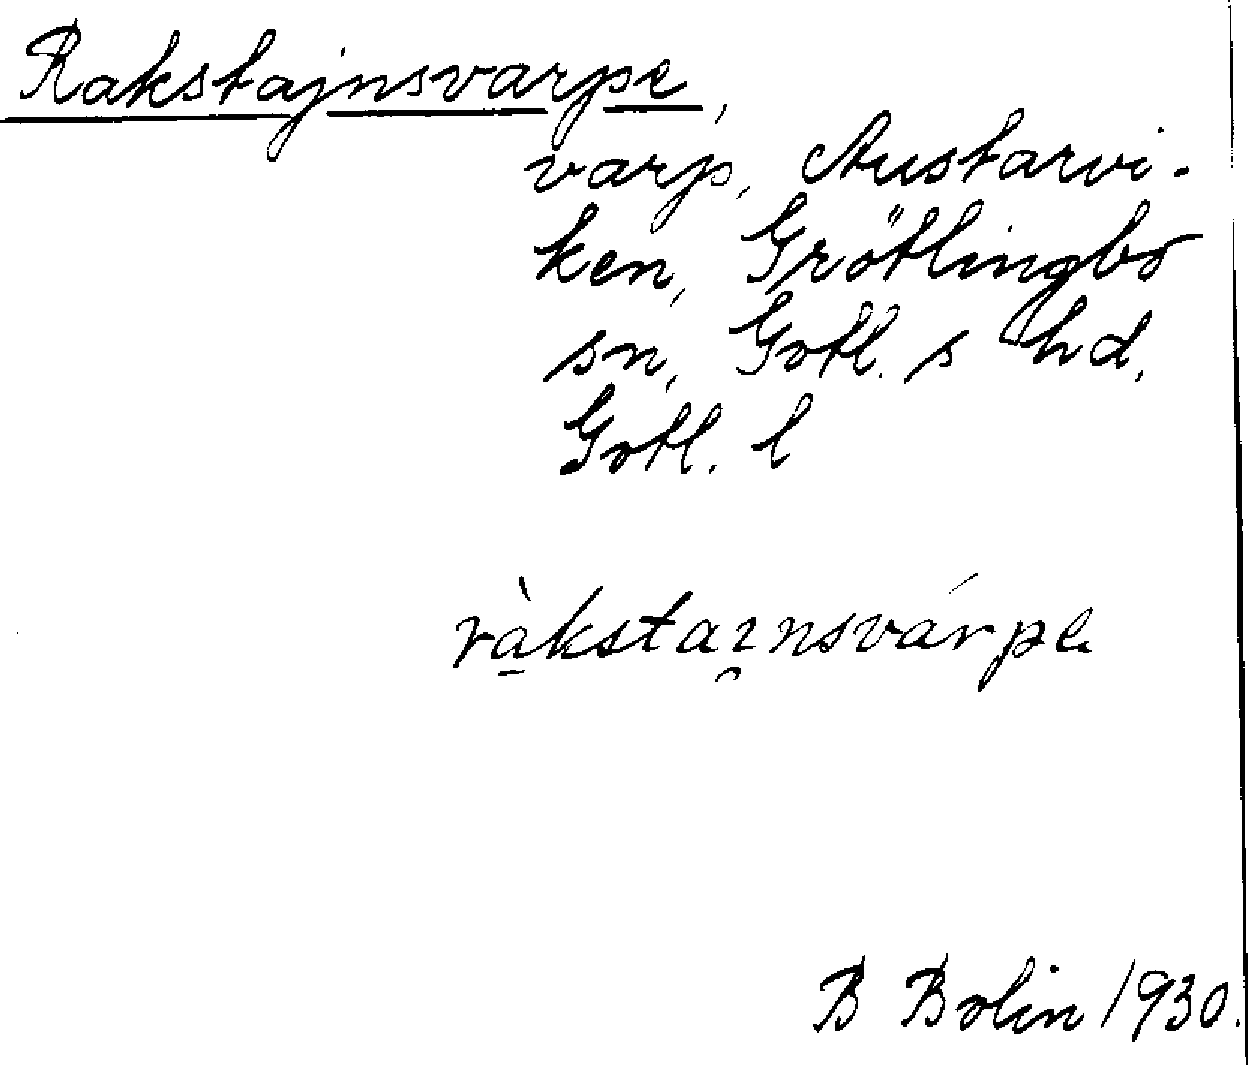 Rakstajnsvarpe,
varp, Austarvi-
ken, Grötlingbo
sn, Gotl. s hd,
Gotl. l
ràkstaınsvárpe
B Bolin 1930.